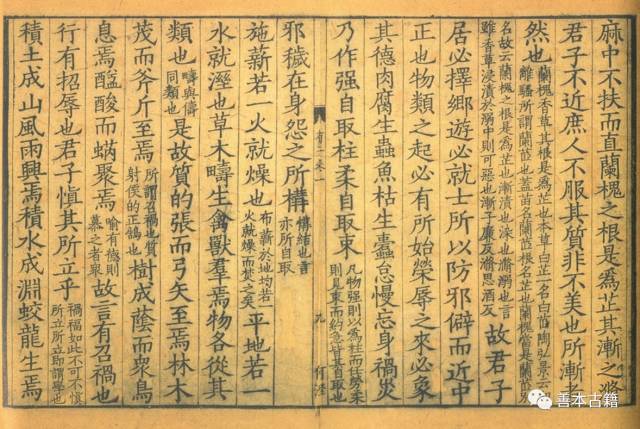 麻中不扶而直蘭槐之根是爲芷其漸之滫
君子不近庶人不服其質非不美也所漸者
然也
蘭槐香草其根是爲芷也本草白芷一名白茝陶弘景云
離騷所謂蘭茝也蓋苗名蘭茝根名芷也蘭槐當是蘭茝
名故云蘭槐之根是爲芷也漸漬也染也滫溺也言
雖香草浸漬於溺中則可惡也漸子廉反滫思酒反
故君子
居必擇鄉遊必就士所以防邪僻而近中
正也物類之起必有所始榮辱之來必象
其德肉腐生蟲魚枯生蠹怠慢忘身禍災
乃作强自取柱柔自取束
凡物强則以爲柱而任勞柔
則見束而約急皆其自取也
九
邪穢在身怨之所構
構結也言
亦所自取
施薪若一火就燥也
布薪於地均若一
火就燥而焚之矣
平地若一
水就溼也草木疇生禽獸羣焉物各從其
類也
疇與儔
同類也
是故質的張而弓矢至焉林木
茂而斧斤至焉
所謂召禍也質
射侯的正鵠也
樹成蔭而衆鳥
息焉醯酸而蜹聚焉
喻有德則
慕之者衆
故言有召禍也
行有招辱也君子慎其所立乎
禍福如此不可不慎
所立所立即謂學也
積土成山風雨興焉積水成淵蛟龍生焉
善本古籍